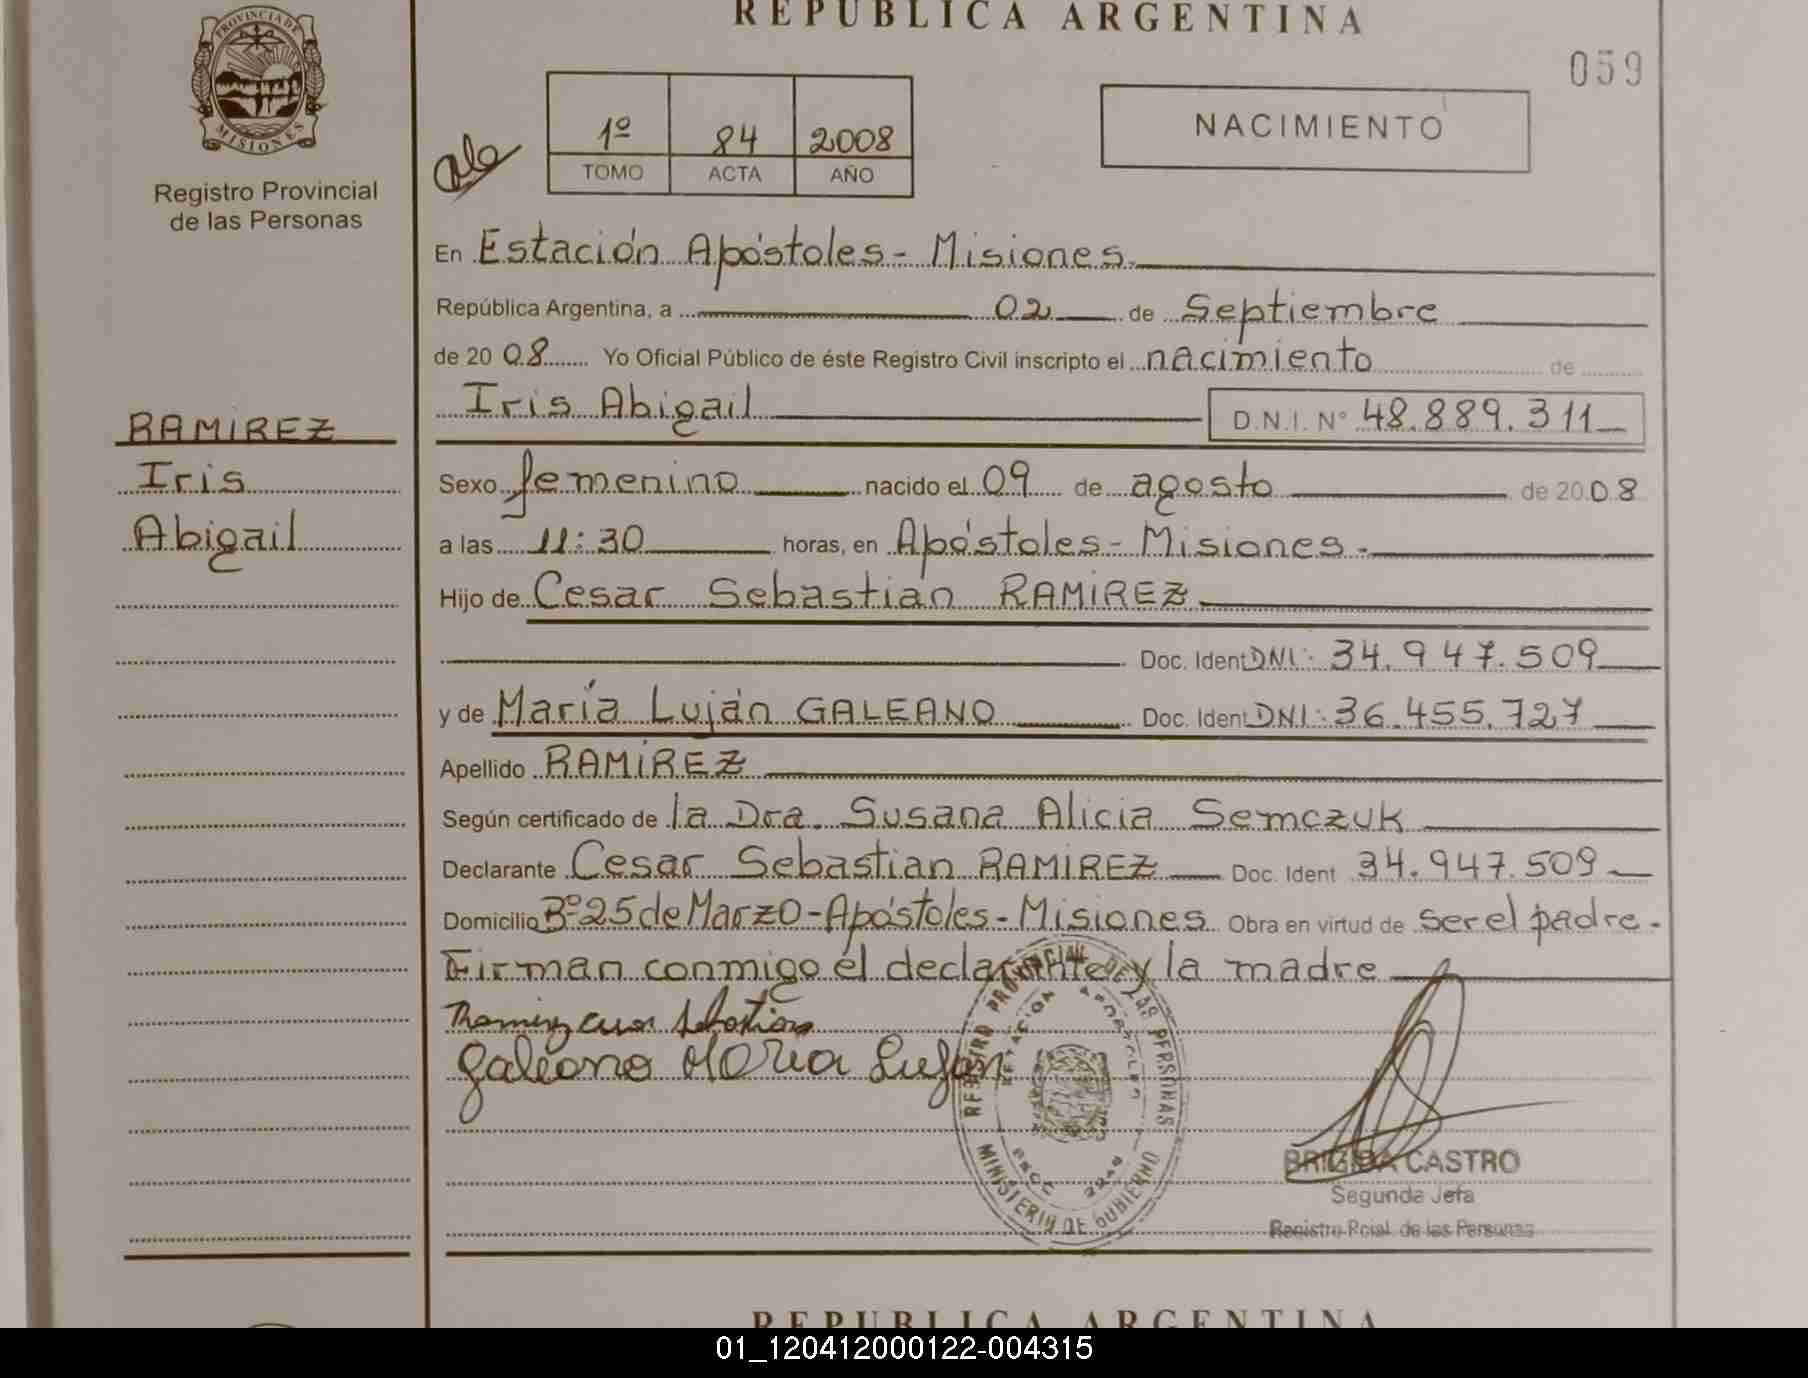 REPUBLICA ARGENTINA
PROVINCIA DE MISIONES
059
Registro Provincial
de las Personas
1º 84 2008
TOMO ACTA AÑO
NACIMIENTO
En Estación Apóstoles - Misiones.
República Argentina, a 02 de Septiembre
de 2008 Yo Oficial Público de éste Registro Civil inscripto el nacimiento de
Iris Abigail D.N.I. Nº 48.889.311
RAMIREZ
Iris
Abigail
Sexo femenino nacido el 09 de agosto de 2008
a las 11:30 horas, en Apóstoles - Misiones.
Hijo de Cesar Sebastian RAMIREZ
Doc. Ident DNI: 34.947.509
y de María Luján GALEANO Doc. Ident DNI: 36.455.727
Apellido RAMIREZ
Según certificado de la Dra. Susana Alicia Semczuk
Declarante Cesar Sebastian RAMIREZ Doc. Ident 34.947.509
Domicilio Bº 25 de Marzo - Apóstoles - Misiones Obra en virtud de ser el padre.
Firman conmigo el declarante y la madre
Ramirez cesar Sebastian
Galeano Maria Lujan
REGISTRO PROVINCIAL DE LAS PERSONAS
ESTACION APOSTOLES
MINISTERIO DE GOBIERNO
BRIGIDA CASTRO
Segunda Jefa
Registro Pcial. de las Personas
REPUBLICA ARGENTINA
01_120412000122-004315